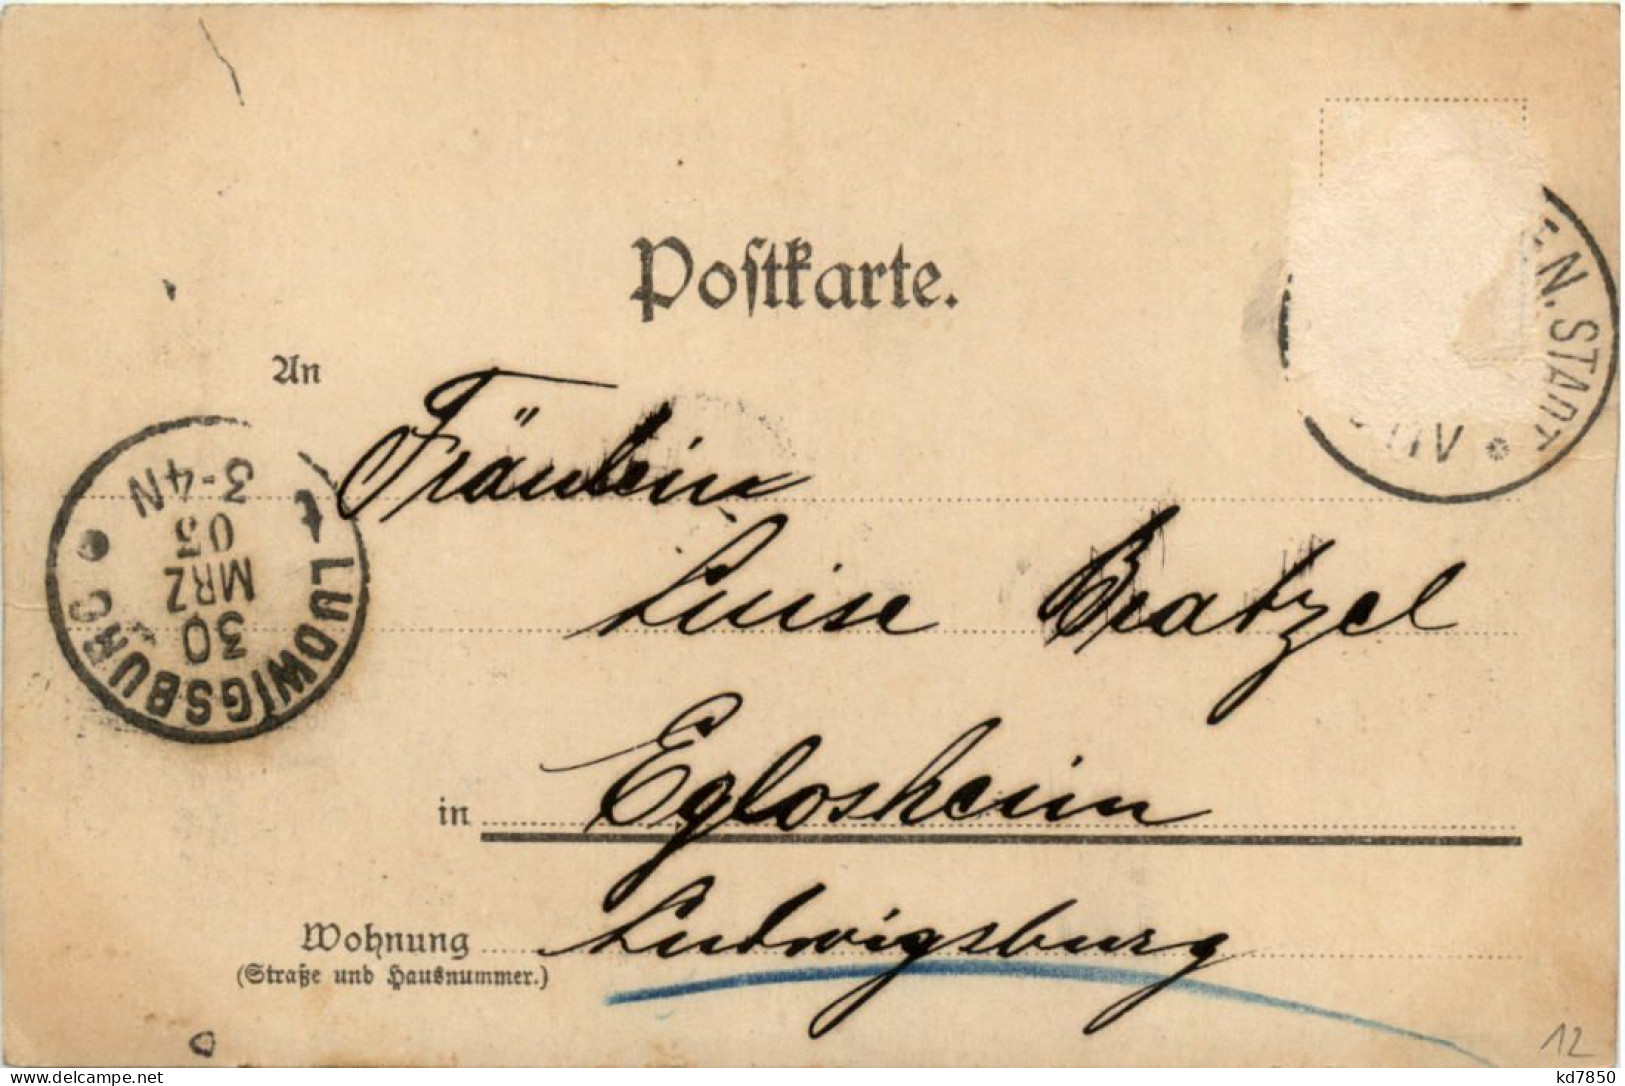 Postkarte.
An
Fräulein
Luise Bratzel
in Eglosheim
Wohnung Ludwigsburg
(Straße und Hausnummer.)
LUDWIGSBURG
30
MRZ
03
3-4N
N. STADT
12
kd7850